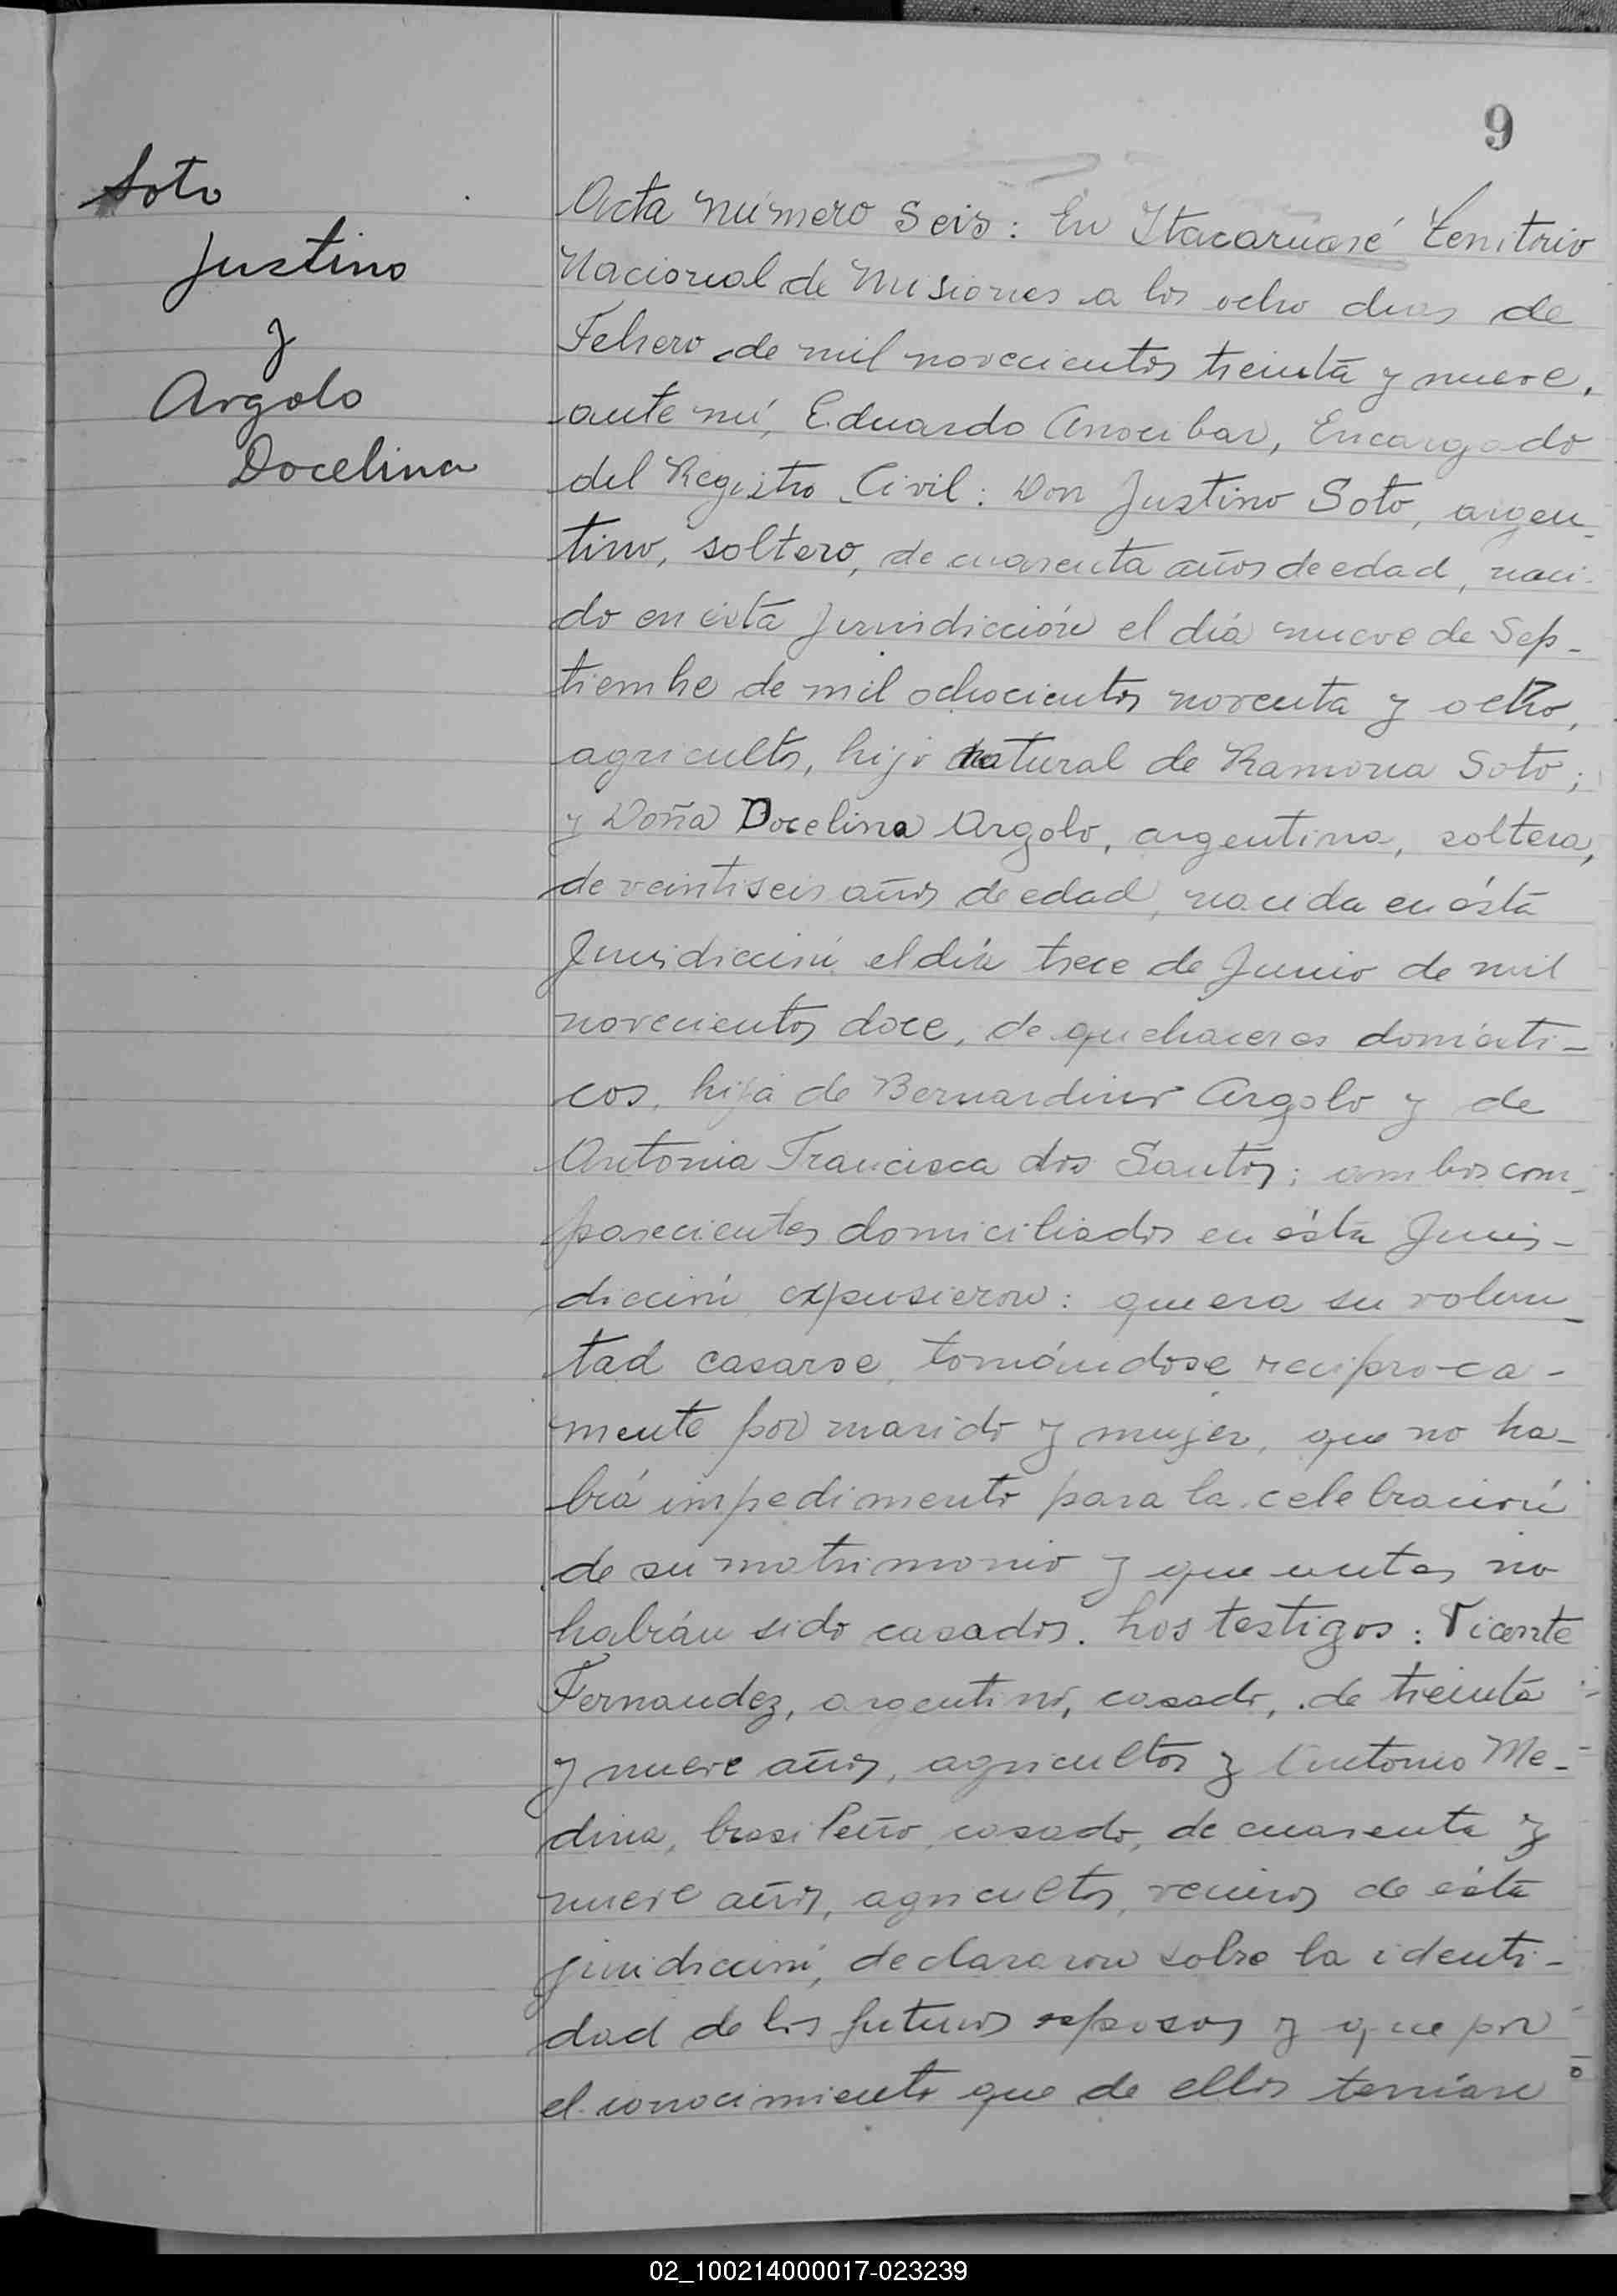 9
Soto
Justino
y
Argolo
Docelina
Acta número Seis: En Itacaruaré Territorio
Nacional de Misiones a los ocho dias de
Febrero de mil novecientos treinta y nueve,
ante mí, Eduardo Anocibar, Encargado
del Registro Civil: Don Justino Soto, argen-
tino, soltero, de cuarenta años de edad, naci-
do en ésta Jurisdicción el día nueve de Sep-
tiembre de mil ochocientos noventa y ocho,
agricultor, hijo natural de Ramona Soto;
y Doña Docelina Argolo, argentina, soltera,
de veintiseis años de edad, nacida en ésta
Jurisdicción el día trece de Junio de mil
novecientos doce, de quehaceres domésti-
cos, hija de Bernardino Argolo y de
Antonia Francisca dos Santos; ambos com-
parecientes domiciliados en ésta Juris-
dicción expusieron: que era su volun-
tad casarse tomándose reciproca-
mente por marido y mujer, que no ha-
bía impedimento para la celebración
de su matrimonio y que antes no
habían sido casados. Los testigos: Vicente
Fernandez, argentino, casado, de treinta
y nueve años, agricultor y Antonio Me-
dina, brasileño, casado, de cuarenta y
nueve años, agricultor, vecinos de ésta
jurisdicción, declararon sobre la identi-
dad de los futuros esposos y que por
el conocimiento que de ellos tenían
02_100214000017-023239